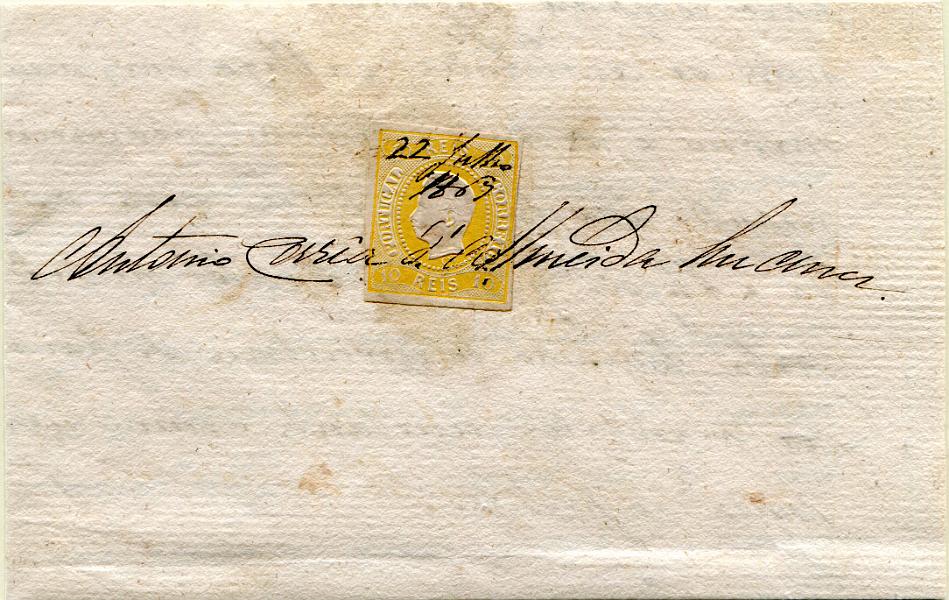 REIS
22 Julho
1869
PORTUGAL
CORREIO
Antonio d'Almeida
10 REIS 10